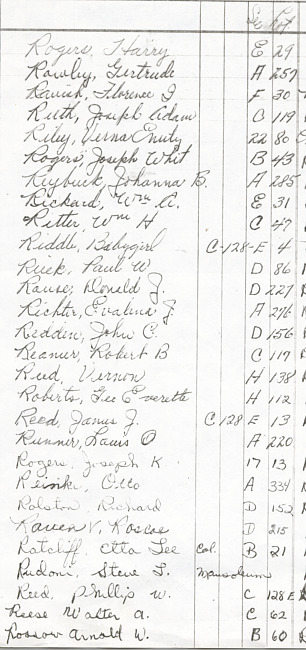 Sec Lot
Rogers, Harry E 29
Rowley, Gertrude A 257
Florence I F 30
Ruth, Joseph Adam C 119
Riley, Verna Emily 22 80
Rogers, Joseph Whit B 43
Reybuck, Johanna B. A 285
Rickard, Wm A. E 31
Ritter, Wm H C 47
Riddle, Babygirl C-128-E 4
Rück, Paul W D 86
Rause, Donald J. D 227
Richter, Evalena J. A 276
Redden, John C. D 156
Reamer, Robert B C 117
Reed, Vernon H 138
Roberts, Geo Everette H 112
Reed, James J. C 128 E 13
Runner, Louis O A 220
Rogers, Joseph K 17 13
Otto A 334
Rolston, Richard D 152
Raven V, Roscoe D 215
Ratcliff, Otto Lee Col. B 21
Rudoni, Steve L. Mausoleum
Reed, Phillip W. C 128 E
Reese Walter A. C 62
Rossow Arnold W. B 60